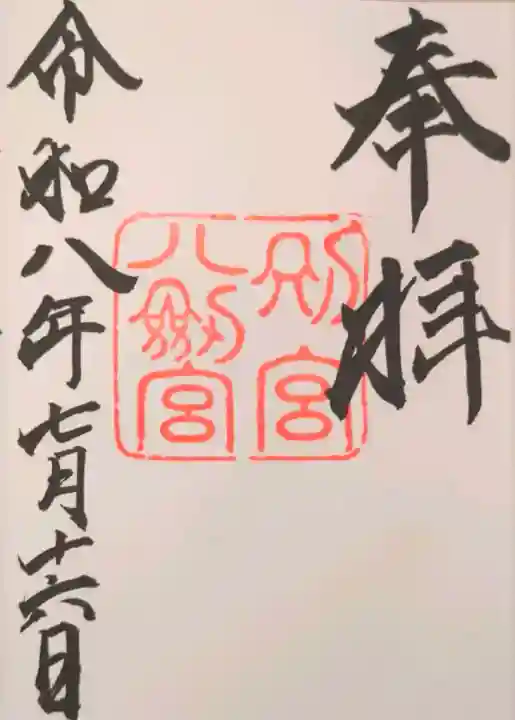 奉拝
別宮
八剱宮
令和八年七月十六日